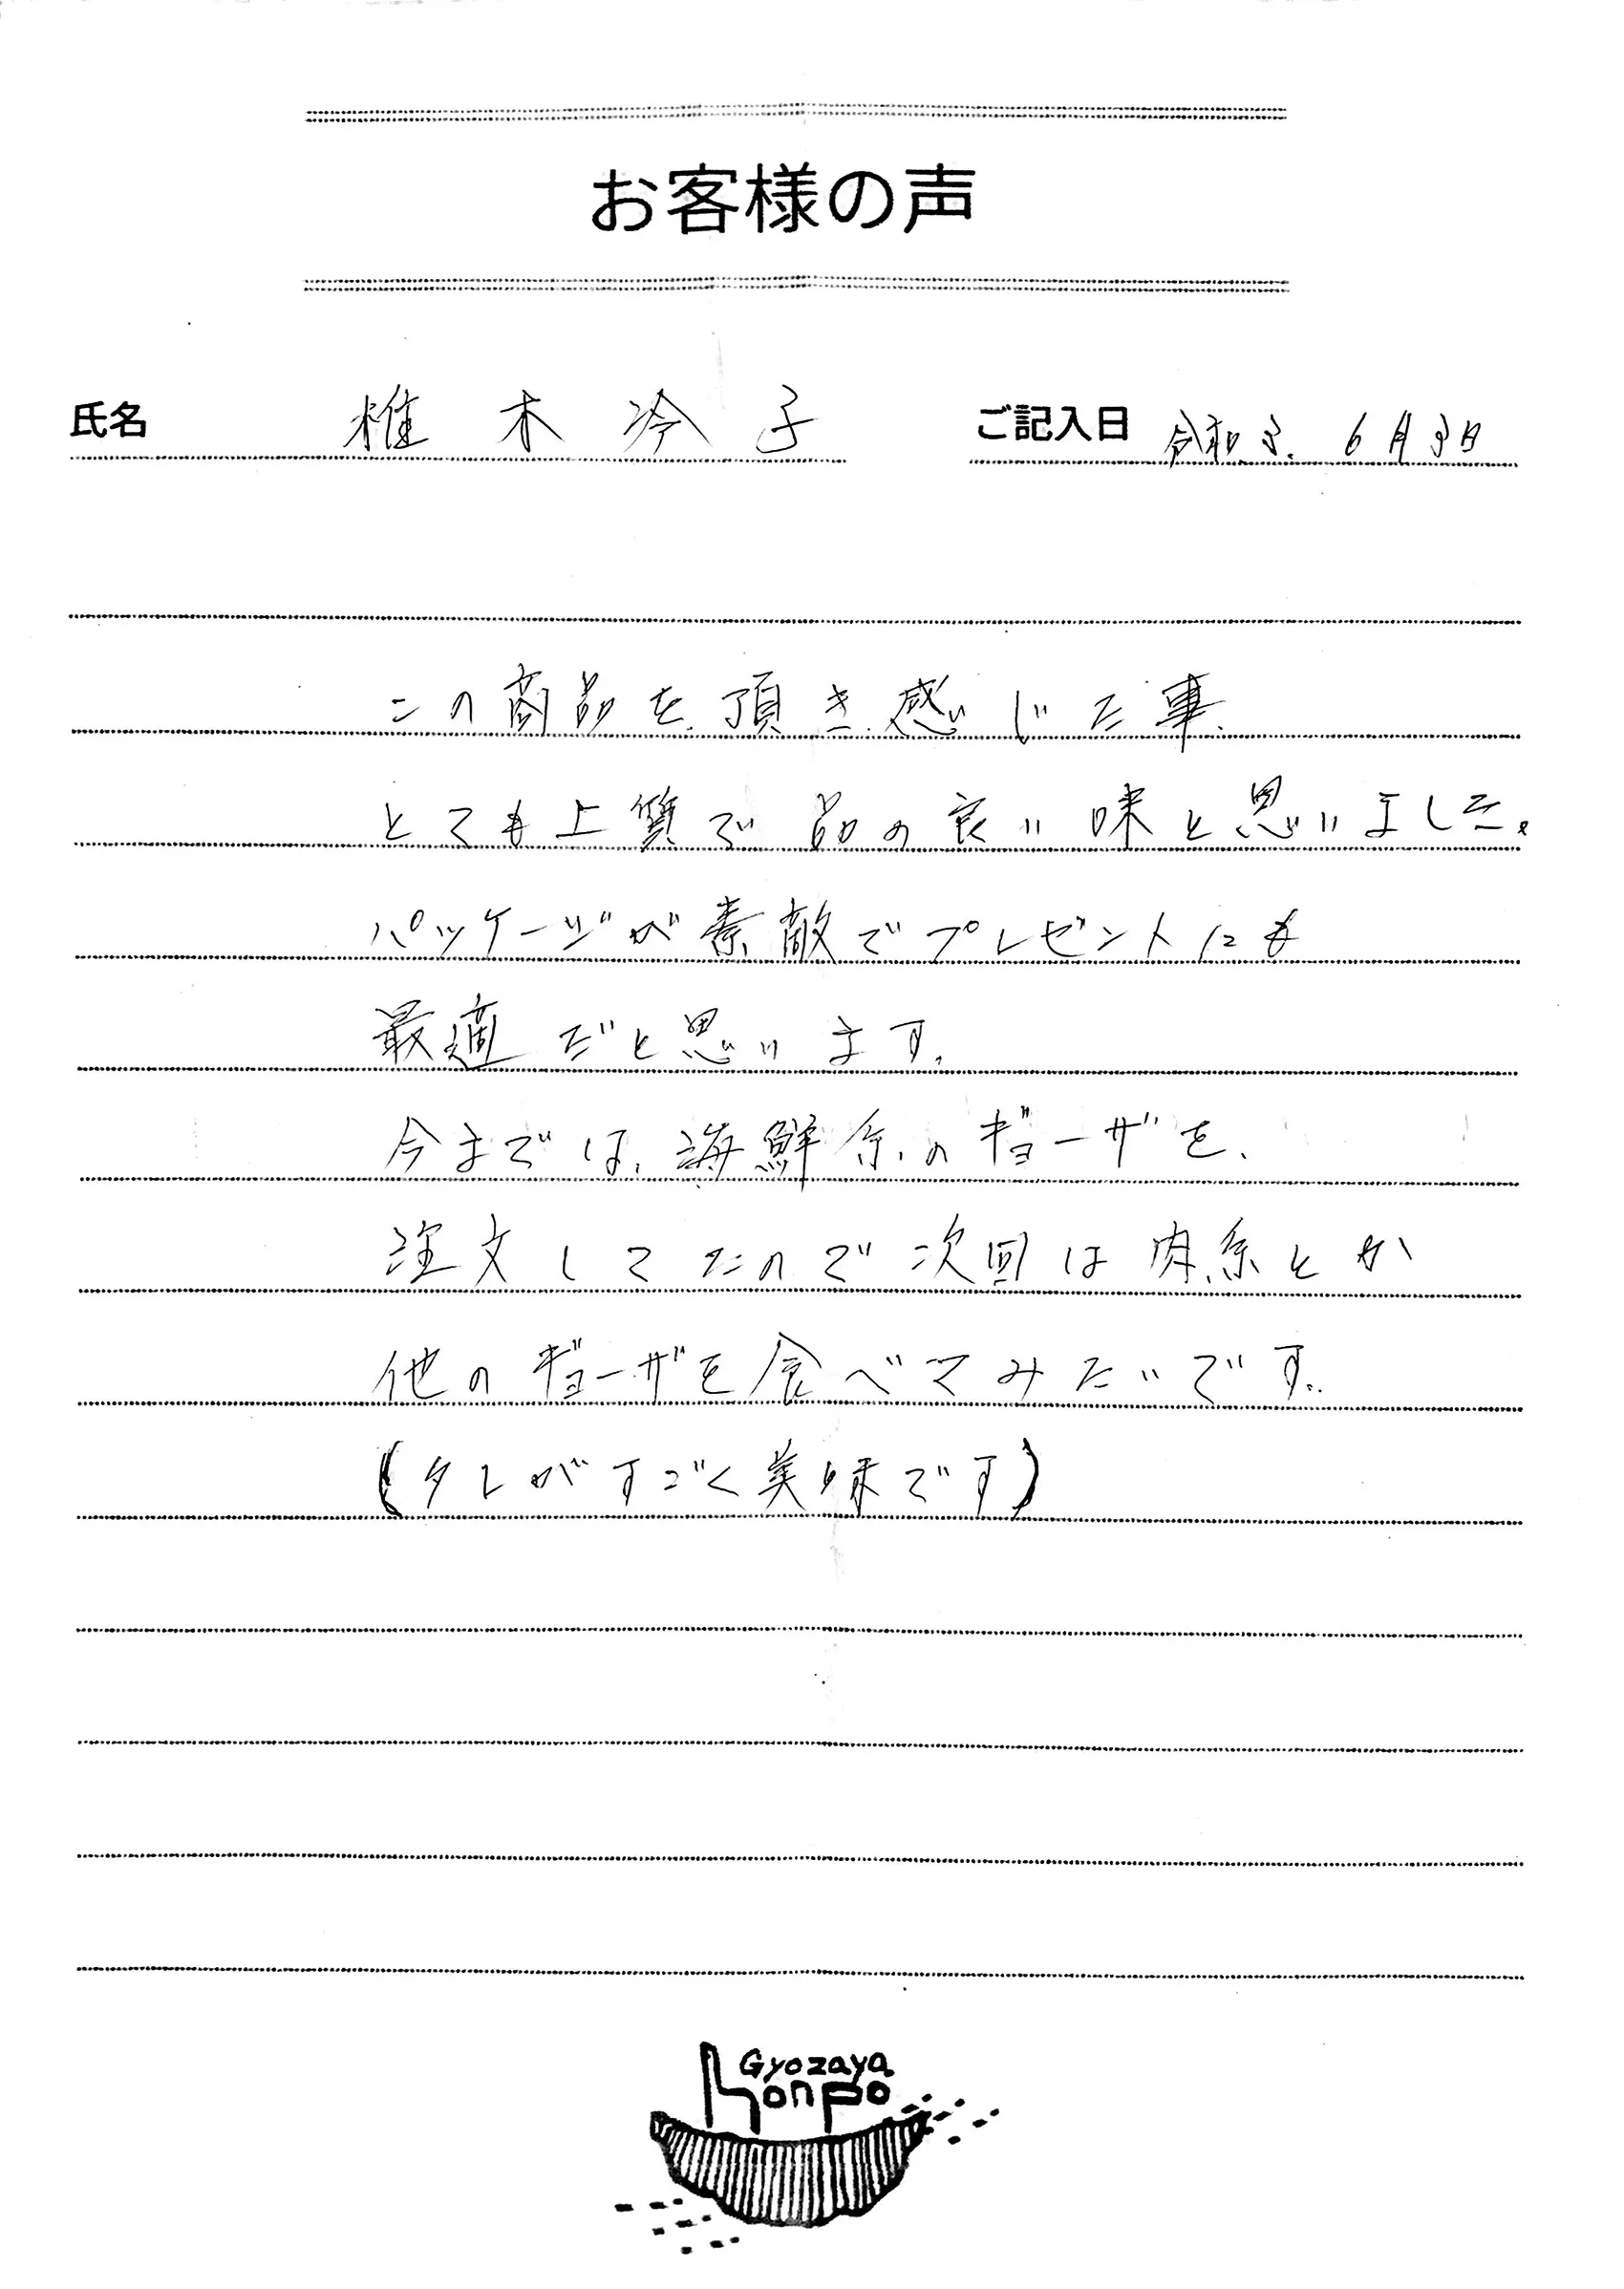 お客様の声
氏名 椎木冷子 ご記入日 令和3. 6月3日
この商品を頂き感じた事、
とても上質で品の良い味と思いました。
パッケージが素敵でプレゼントにも
最適だと思います。
今までは、海鮮系のギョーザを、
注文してたので次回は肉系とか
他のギョーザを食べてみたいです。
(タレがすごく美味です)
Gyozaya
honpo